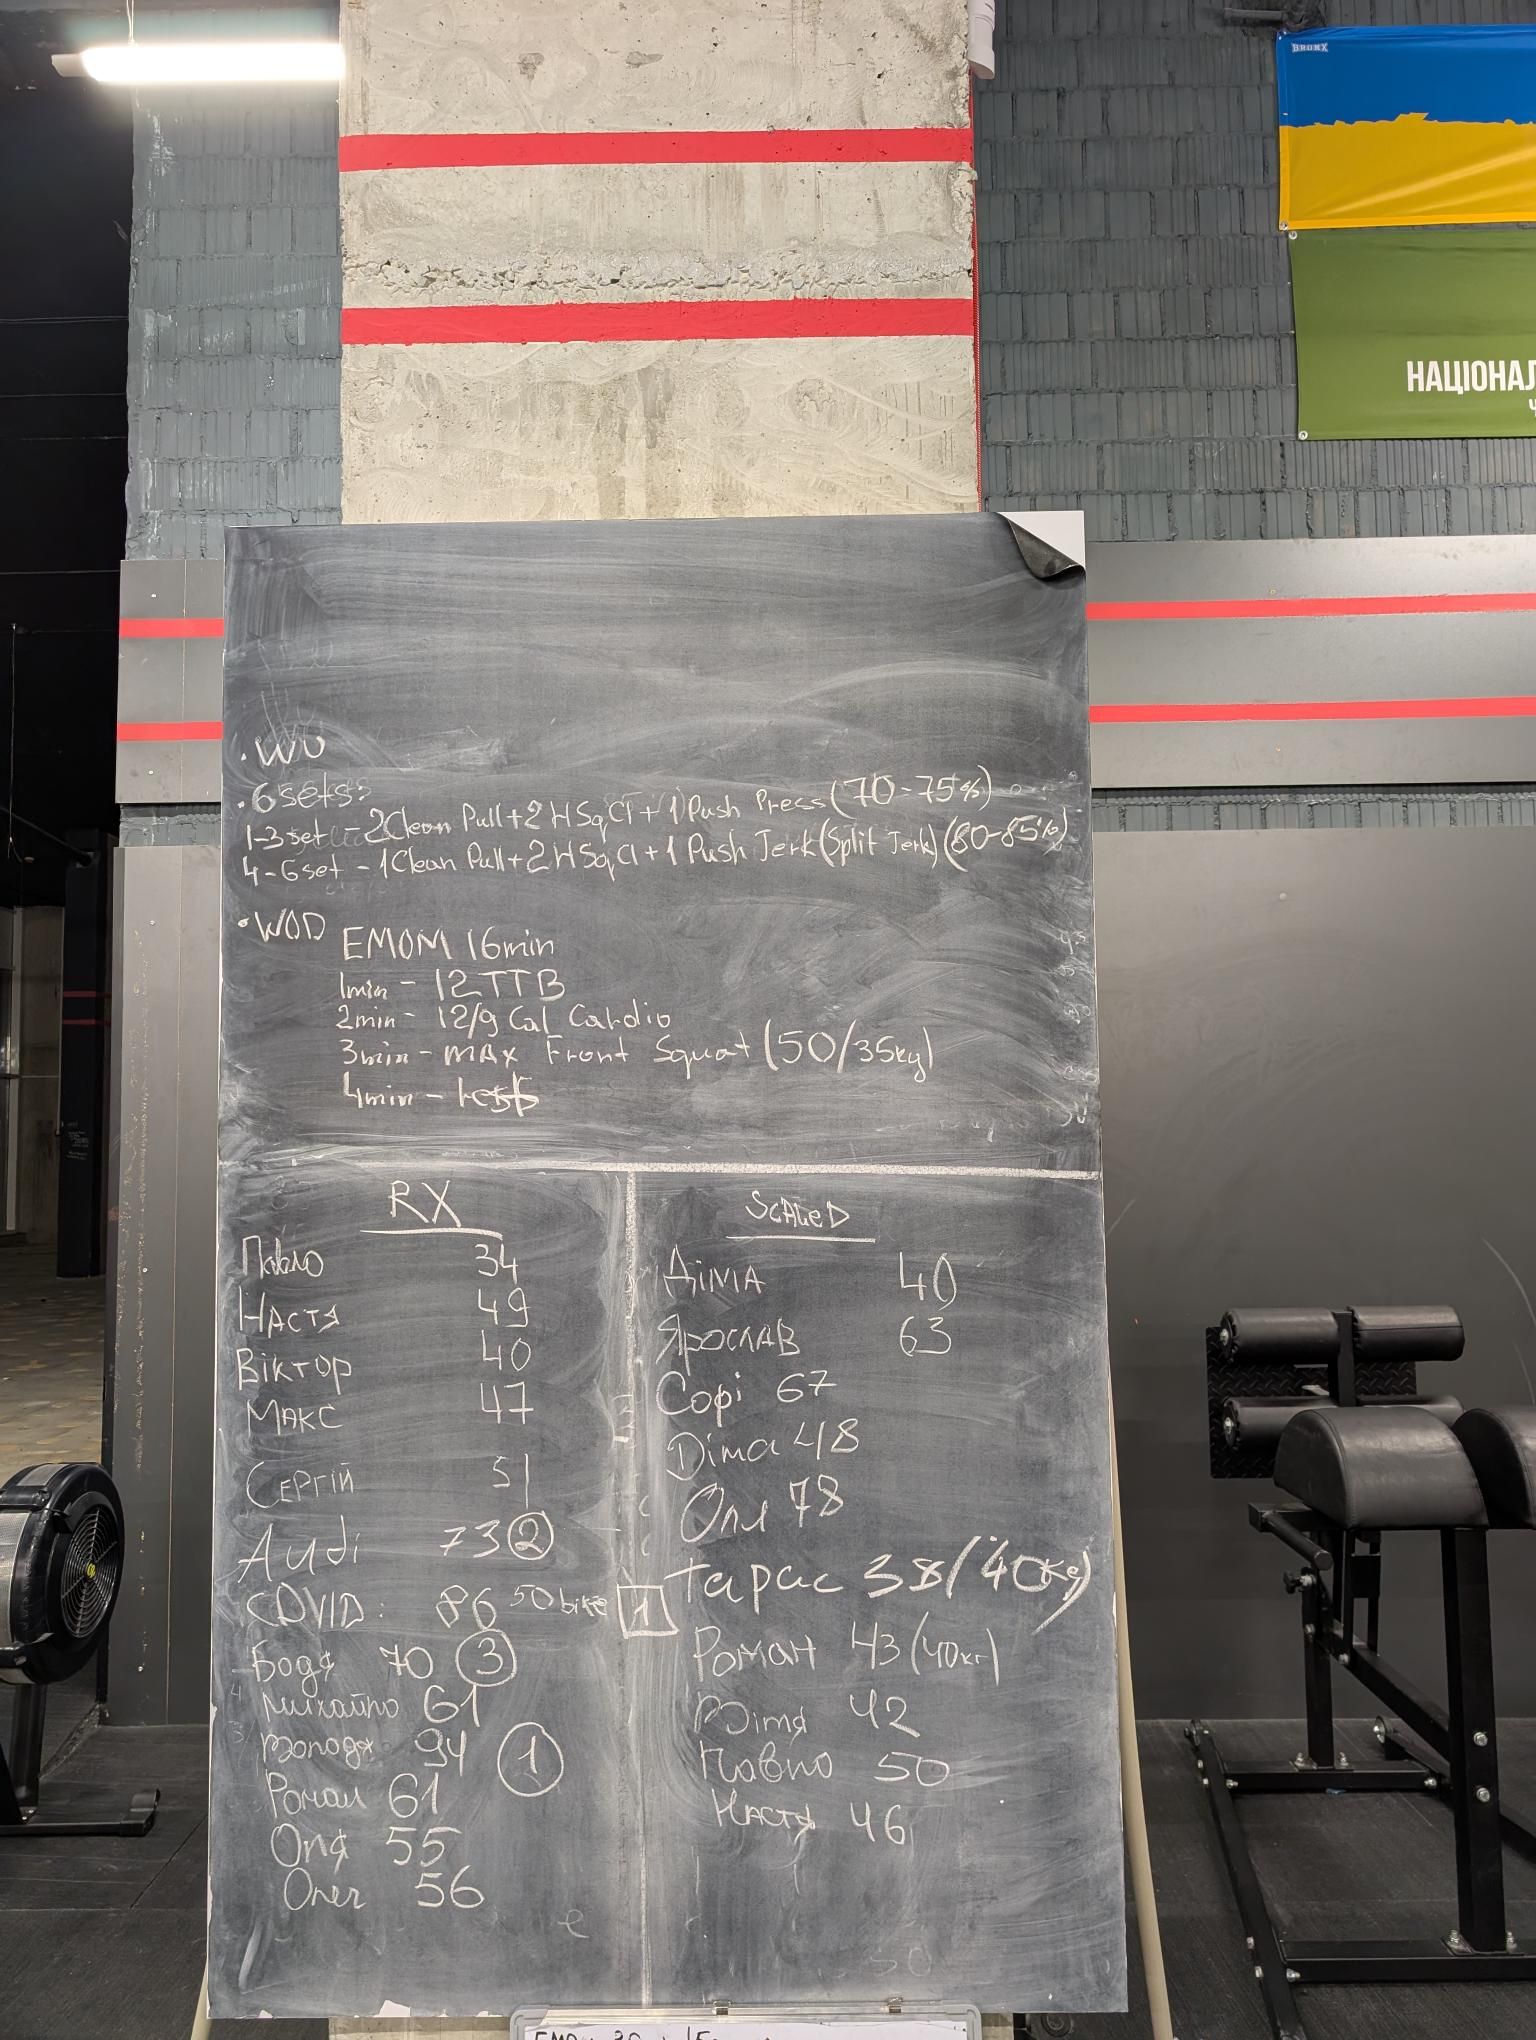 BRONX
НАЦІОНАЛ
· WU
· 6 sets:
1-3 set - 2 Clean Pull + 2 HSqCl + 1 Push Press (70-75%)
4-6 set - 1 Clean Pull + 2 HSqCl + 1 Push Jerk (Split Jerk) (80-85%)
· WOD
EMOM 16min
1min - 12 TTB
2min - 12/9 Cal Cardio
3min - max Front Squat (50/35kg)
4min - rest
RX
Павло 34
Настя 49
Віктор 40
Макс 47
Сергій 51
Audi 73 2
COVID: 86 50 bike 1
Водя 70 3
Михайло 61
Володя 94 1
Роман 61
Оля 55
Олег 56
ScALeD
Діма 40
Ярослав 63
Софі 67
Діма 48
Оля 78
Тарас 38 (40кg)
Роман 43 (40кг)
Вітя 42
Павло 50
Настя 46